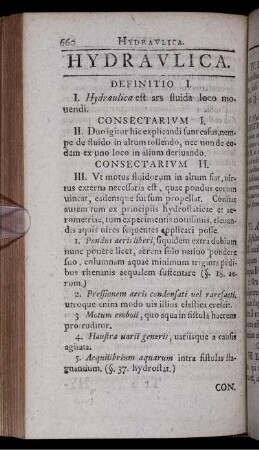 660 HYDRAVLICA.
HYDRAVLICA.
DEFINITIO I.
I. Hydraulica est ars fluida loco mo-
uendi.
CONSECTARIVM I.
II. Duo igitur hic explicandi sunt casus, nem-
pe de fluido in altum tollendo, nec non de eo-
dem ex uno loco in alium deriuando.
CONSECTARIVM II.
III. Vt motus fluidorum in altum fiat, uir-
tus externa necessaria est, quae pondus eorum
uincat, eademque sursum propellat. Constat
autem tum ex principiis hydrostaticae et ae-
rometriae, tum experimentis notissimis, eleuan-
dis aquis uires sequentes applicari posse.
1. Pondus aeris liberi, siquidem extra dubium
nunc ponere licet, aërem solo natiuo pondere
suo, columnam aquae minimum triginta pedi-
bus rhenanis aequalem sustentare (§. 18. ae-
rom.)
2. Pressionem aeris condensati uel rarefacti,
utroque enim modo uis illius elastica crescit.
3 Motum emboli, quo aqua in fistula haerens
protruditur.
4. Haustra uarii generis, uariisque a causis
agitata.
5. Aequilibrium aquarum intra fistulas sta-
gnandum. (§. 37. hydrostat.)
CON.